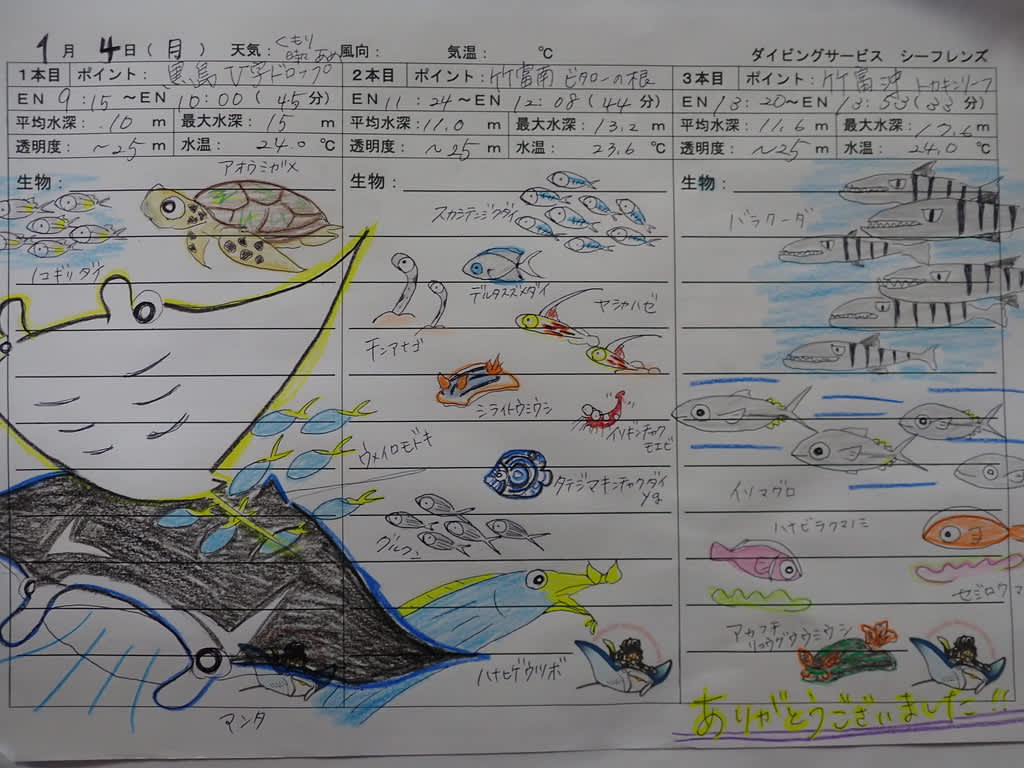 1月 4日(月) 天気: くもり 時々 あめ 風向: 気温: ℃ ダイビングサービス シーフレンズ
1本目 ポイント: 黒島 V字ドロップ
EN 9:15 ~EN 10:00 (45分)
平均水深: 10 m 最大水深: 15 m
透明度: ~25m 水温: 24.0 ℃
生物:
アオウミガメ
ノコギリダイ
ウメイロモドキ
マンタ
2本目 ポイント: 竹富南 ビタローの根
EN 11:24 ~EN 12:08 (44分)
平均水深: 11.0 m 最大水深: 13.2 m
透明度: ~25m 水温: 23.6 ℃
生物:
スカシテンジクダイ
デルタスズメダイ
ヤシャハゼ
チンアナゴ
シライトウミウシ
イソギンチャク
モエビ
タテジマキンチャクダイ
yg
グルクン
ハナヒゲウツボ
3本目 ポイント: 竹富沖 トカキンリーフ
EN 13:20 ~EN 13:53 (33分)
平均水深: 11.6 m 最大水深: 17.6 m
透明度: ~25m 水温: 24.0 ℃
生物:
バラクーダ
イソマグロ
ハナビラクマノミ
セジロクマ
アカフチ
リュウグウウミウシ
ありがとうございました!!